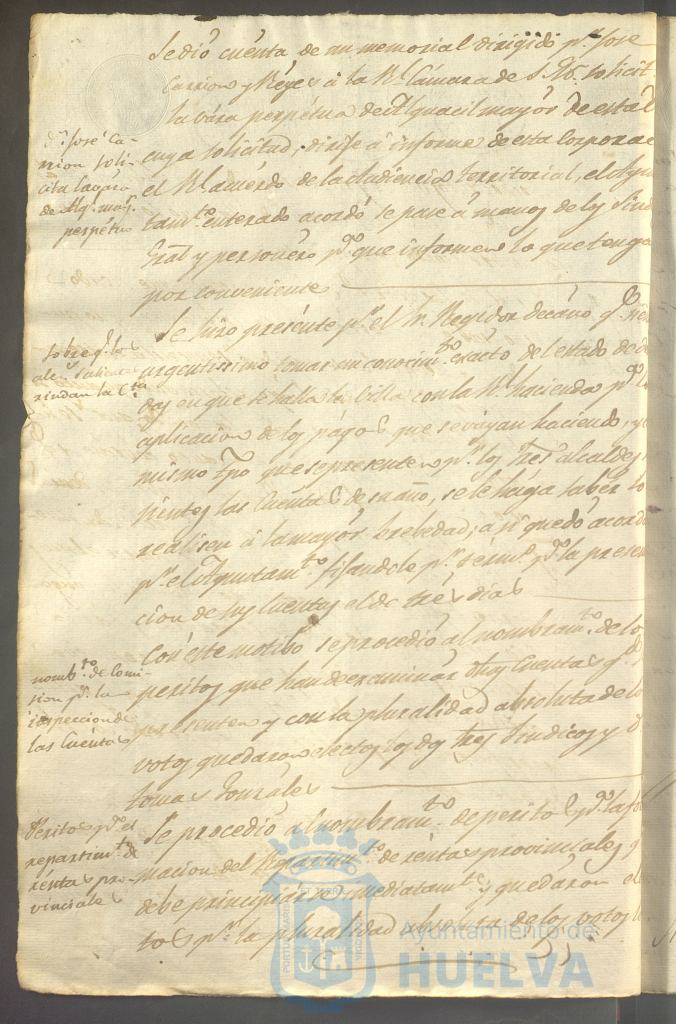 Se dió cuenta de un memorial dirigido pr. Jose
Carrion y Reyes á la Rl. Cámara de S.M. solicit
la vára perpétua de Alguacil mayór de esta
cuya solicitud, dirije á informe de esta Corporac
el Rl. acuérdo de la Audiencia territorial, el Ayun
tamto. enterado acordó se pase á manos de los Sind
Gral y personéro pa. que informen lo que tenga
por conveniente
Dn. José Ca-
rrion soli-
cita la vára
de Alg. mayr.
perpétuo
Se hizo presénte pr. el Sr. Regidor decano q.
urgentissimo tomar un conocimto. exacto del estado de
das en que se halla la Villa con la Rl. hacienda pa.
aplicacion de los págos que se váyan haciendo, y
mismo tpo que se presenten pr. los tres alcaldes
las Cuentas de su año, se le hága saber lo
realisen á la mayór brebedad; así quedó acord
pr. el Ayuntamto. fijandole pr. térmo. pa. la presen
cion de sus Cuentas el de trés dias
sobre q. los
alcs. salientes
rindan la Cta.
Con este motibo se procedió al nombramto. de los
peritos que han de exsaminár dhas Cuentas q. se
presenten y con la pluralidad absoluta de
votos quedaron electos los dos Sres Sindicos y D.
tomas Gonzales
nombto. de Comi-
sion pa. la
inspeccion de
las Cuentas
Se procedió al nombramto. de peritos pa. la for
macion del Repartimto. de réntas provinciales q
debe principiárse inmediatamte. y quedáron el
tos pr. la pluralidad absoluta de los votos
Peritos pa. el
repartimto. de
réntas pro-
vinciales
PORTUS MARIS
ET TERRAE
CUSTODIA
Ayuntamiento de
HUELVA